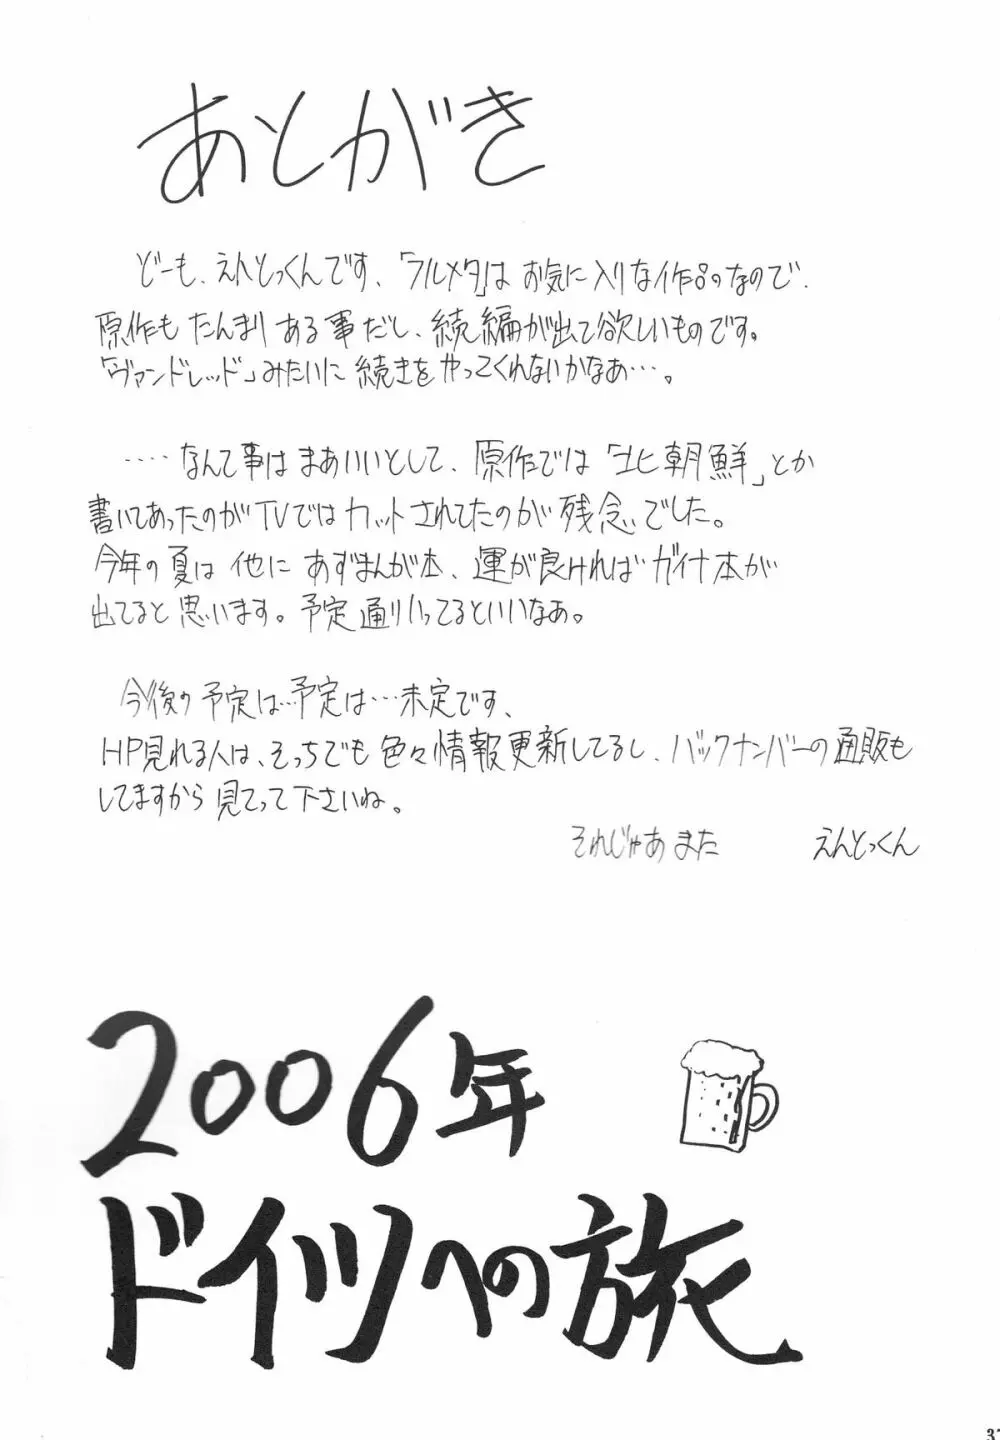 あとがき
どーも、えんとっくんです、「フルメタ」は お気に入りな作品のなので、
原作も たんまり ある事だし、続編が出て欲しいものです。
「ヴァンドレッド」みたいに 続きを やってくれないかなあ…。
‥‥なんて事は まあいいとして、原作では「北朝鮮」とか
書いてあったのが TVでは カットされてたのが 残念でした。
今年の夏は 他に あずまんが本、運が良ければ ガイナ本が
出てると 思います。予定通りいってるといいなあ。
今後の予定は…予定は…未定です、
HP見れる人は、そっちでも 色々情報更新してるし、バックナンバーの通販も
してますから 見てって 下さいね。
それじゃあ また えんとっくん
2006年
ドイツへの旅
37